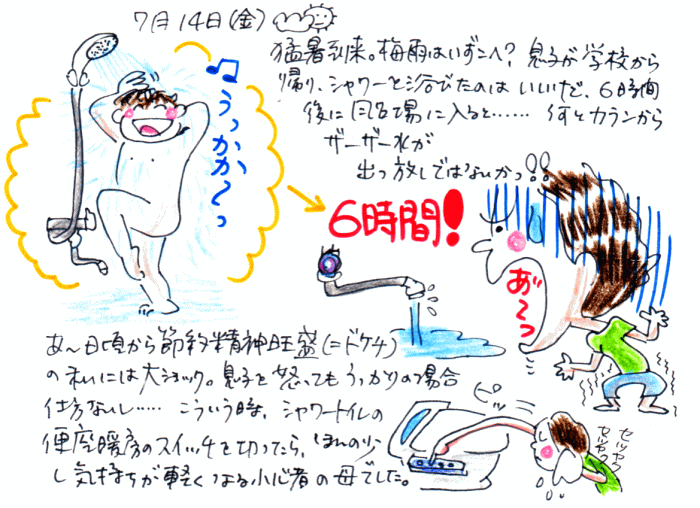 7月14日(金)
猛暑到来。梅雨はいずこへ?息子が学校から
帰り、シャワーを浴びたのはいいけど、6時間
後に風呂場に入ると…… 何とカランから
ザーザー水が
出っ放しではないかっ!!
♫うっかか〜っ
6時間!
あ゛〜っ
あ〜日頃から節約精神旺盛(=ドケチ)
の私には大ショック。息子を怒ってもうっかりの場合
仕方ないし…… こういう時、シャワートイレの
便座暖房のスイッチを切ったら、ほんの少
し気持ちが軽くなる小心者の母でした。
ピッ
セツヤク
セツヤク